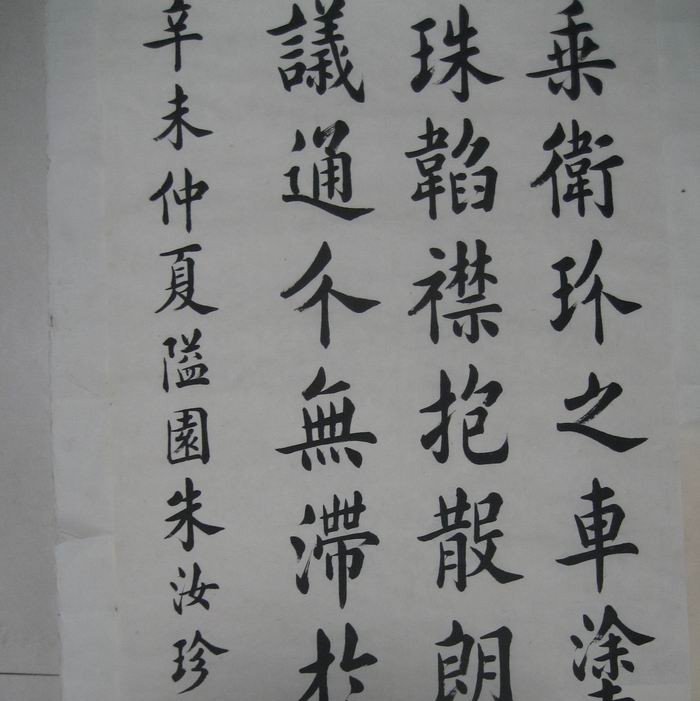 乗衛玠之車塗
珠韜襟抱散朗
議通介無滯於
辛未仲夏隘園朱汝珍